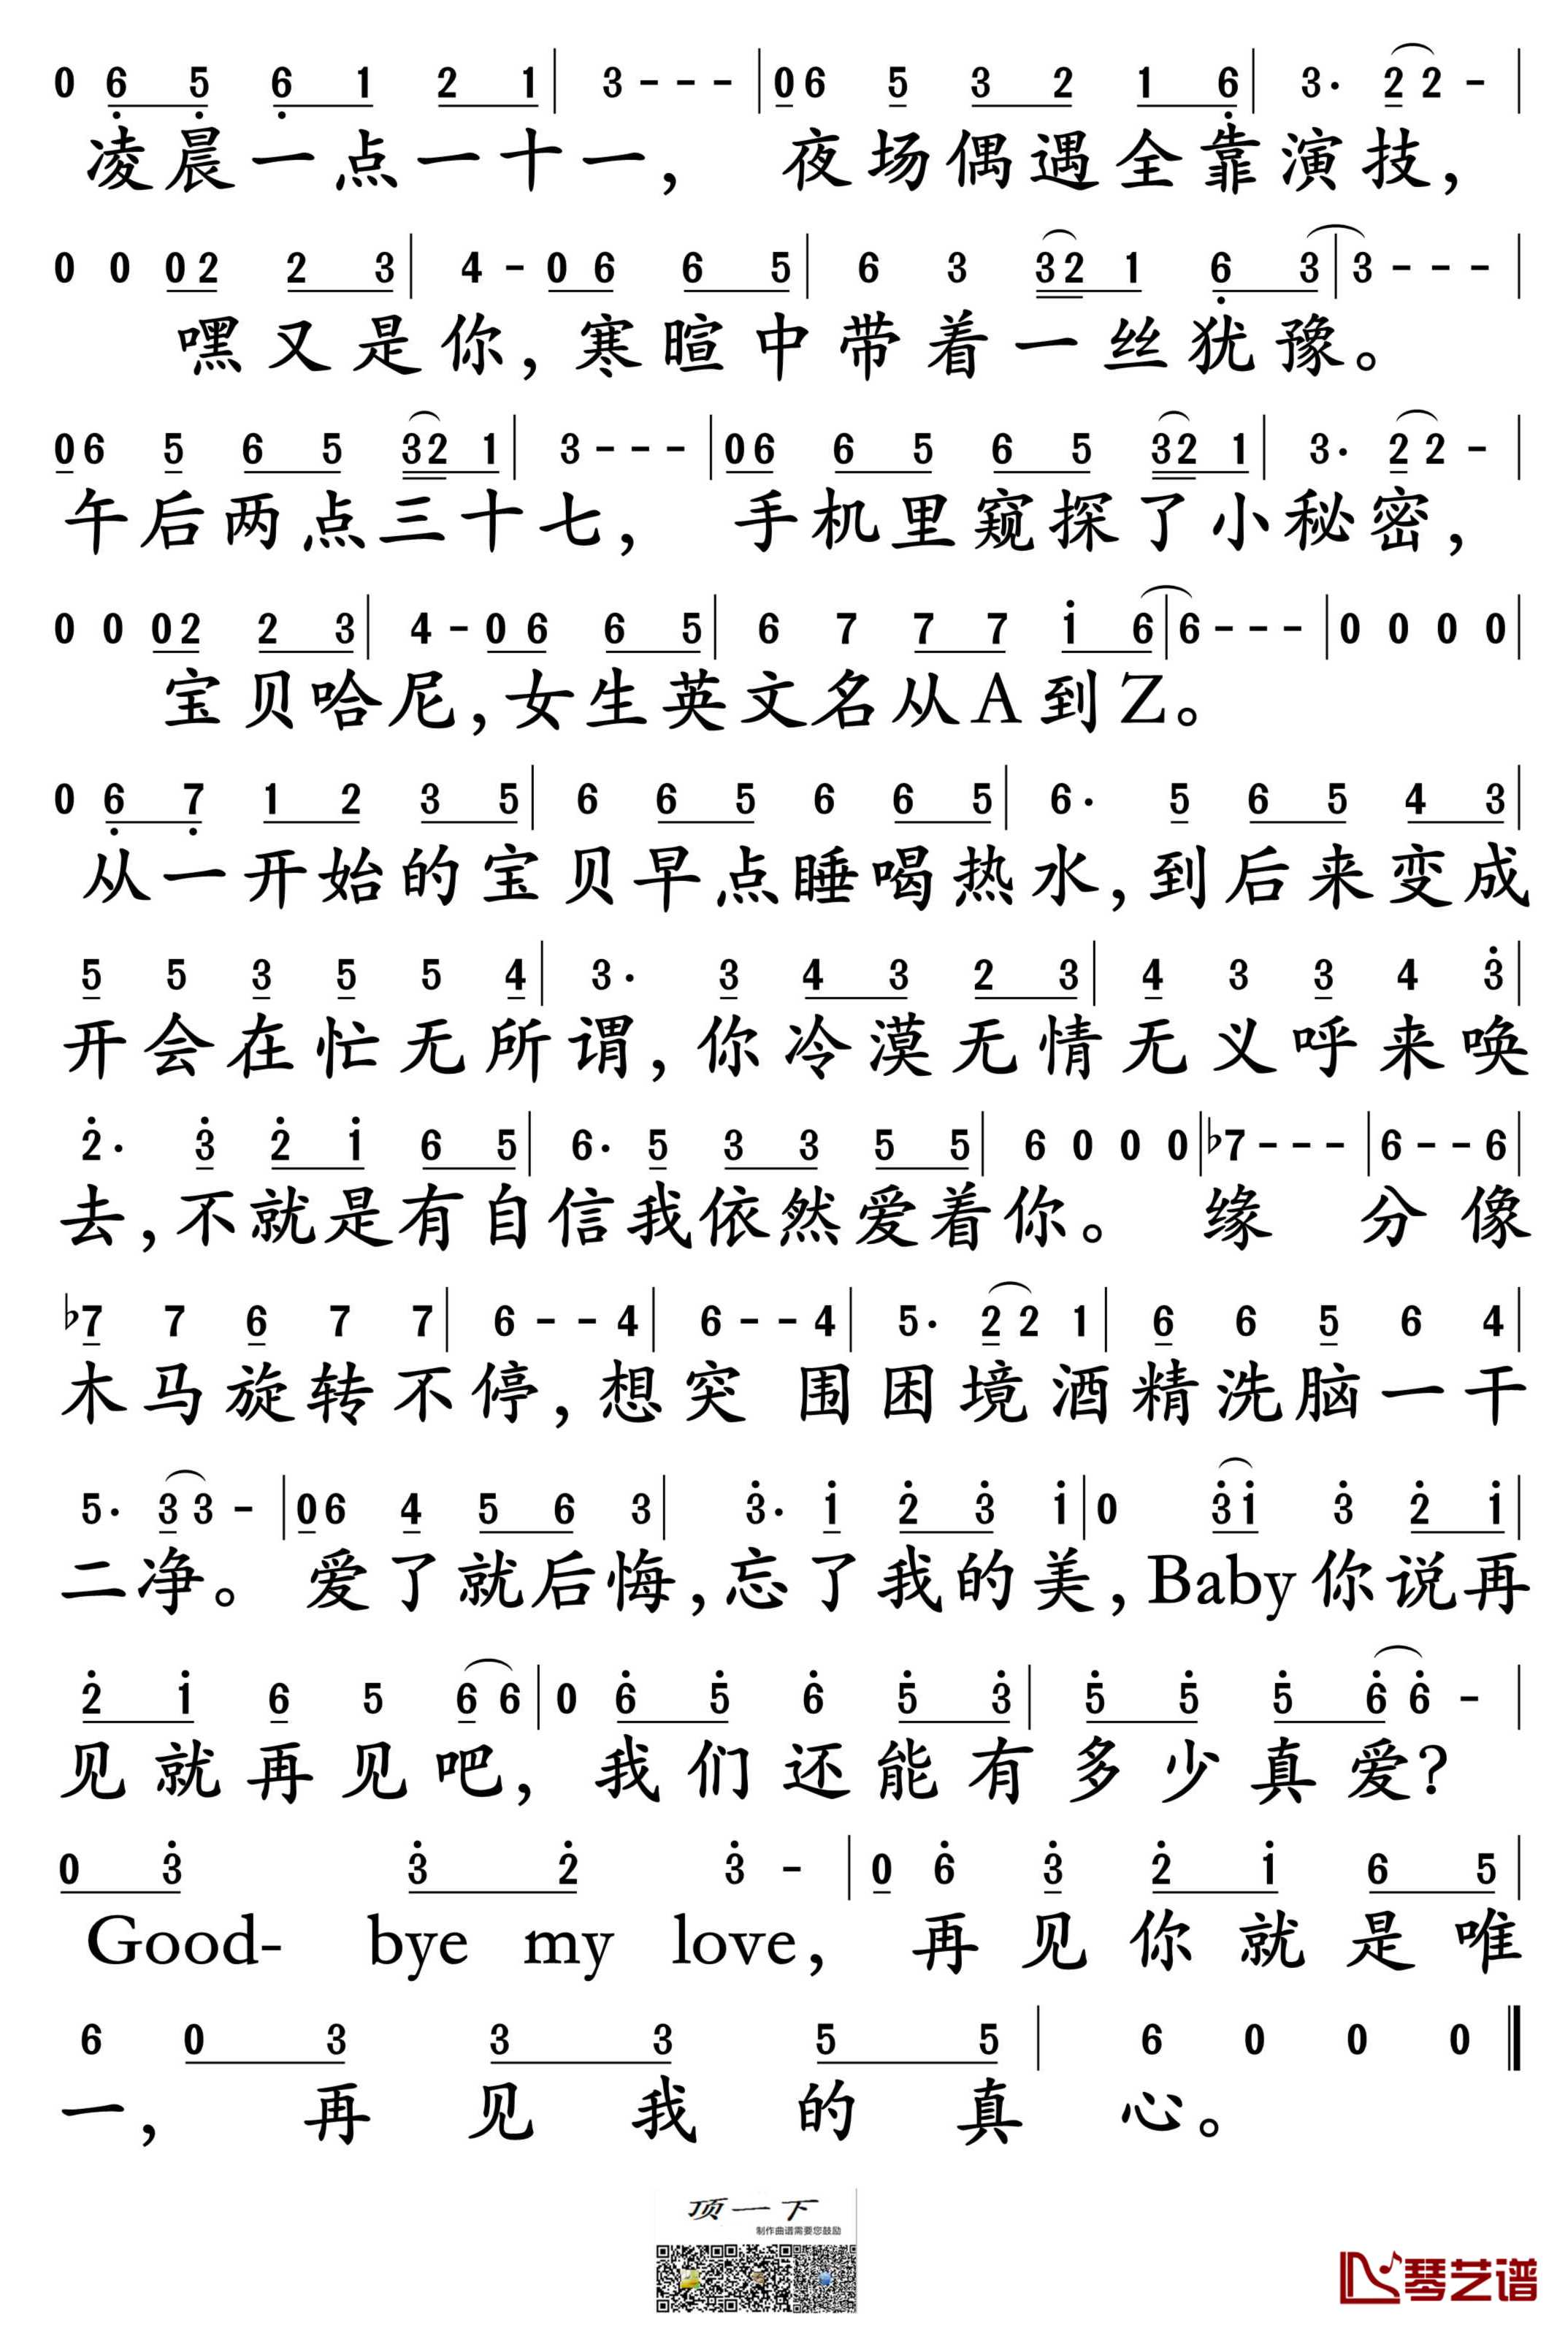 0 6 5 6 1 2 1 | 3 - - - | 0 6 5 3 2 1 6 | 3· 2 2 - |
凌晨一点一十一， 夜场偶遇全靠演技，
0 0 0 2 2 3 | 4 - 0 6 6 5 | 6 3 3 2 1 6 3 | 3 - - - |
嘿又是你，寒暄中带着一丝犹豫。
0 6 5 6 5 3 2 1 | 3 - - - | 0 6 6 5 6 5 3 2 1 | 3· 2 2 - |
午后两点三十七， 手机里窥探了小秘密，
0 0 0 2 2 3 | 4 - 0 6 6 5 | 6 7 7 7 i 6 | 6 - - - | 0 0 0 0 |
宝贝哈尼，女生英文名从A到Z。
0 6 7 1 2 3 5 | 6 6 5 6 6 5 | 6· 5 6 5 4 3 |
从一开始的宝贝早点睡喝热水，到后来变成
5 5 3 5 5 4 | 3· 3 4 3 2 3 | 4 3 3 4 3 |
开会在忙无所谓，你冷漠无情无义呼来唤
2· 3 2 i 6 5 | 6· 5 3 3 5 5 | 6 0 0 0 | ♭7 - - - | 6 - - 6 |
去，不就是有自信我依然爱着你。 缘 分 像
♭7 7 6 7 7 | 6 - - 4 | 6 - - 4 | 5· 2 2 1 | 6 6 5 6 4 |
木马旋转不停，想突 围困境酒精洗脑一干
5· 3 3 - | 0 6 4 5 6 3 | 3· i 2 3 i | 0 3 i 3 2 i |
二净。 爱了就后悔，忘了我的美，Baby你说再
2 i 6 5 6 6 | 0 6 5 6 5 3 | 5 5 5 6 6 - |
见就再见吧， 我们还能有多少真爱？
0 3 3 2 3 - | 0 6 3 2 i 6 5 |
Good- bye my love， 再见你就是唯
6 0 3 3 3 5 5 | 6 0 0 0 ‖
一， 再见我的真心。
顶一下
制作曲谱需要您鼓励
琴艺谱